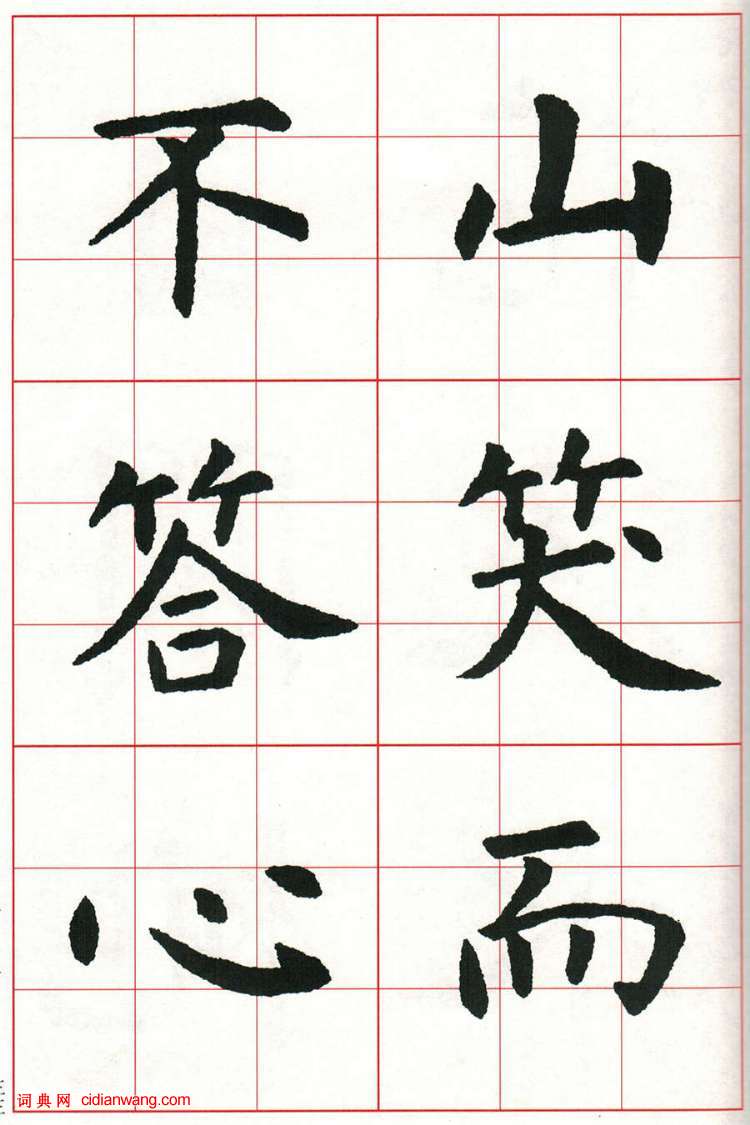 山笑而
不答心
词典网 cidianwang.com